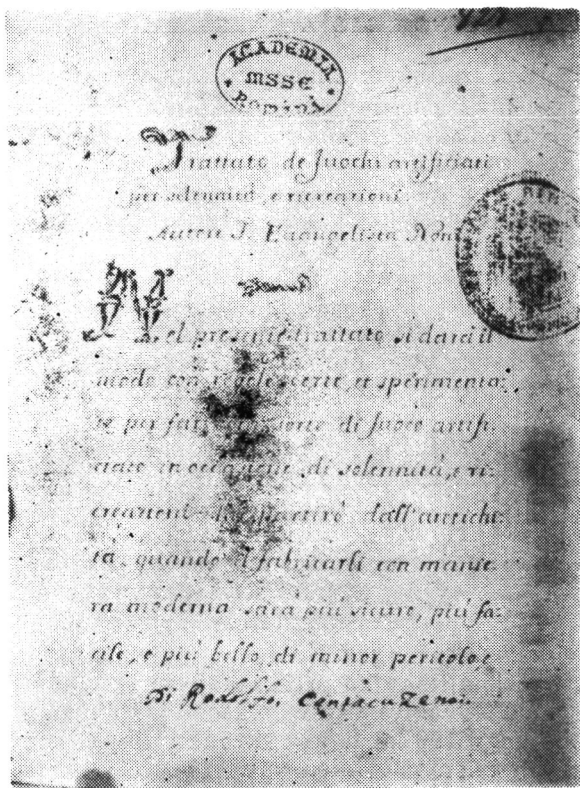 ACADEMIA
MSSE
Romini
Trattato de fuochi artificiati
per solennità, e ricreationi.
Autore J. Euangelista
Nel presente trattato si darà il
modo con regole certe, et sperimenta:
te per far sorte di fuoco artifi:
ciato in occasione di solennità, e ri:
creationi dall'antichi:
tà, quando il fabricarli con manie:
ra moderna sarà più sicuro, più fa:
cile, e più bello, di minor pericolo, e
Di Rodolfo, Cantacuzenoi